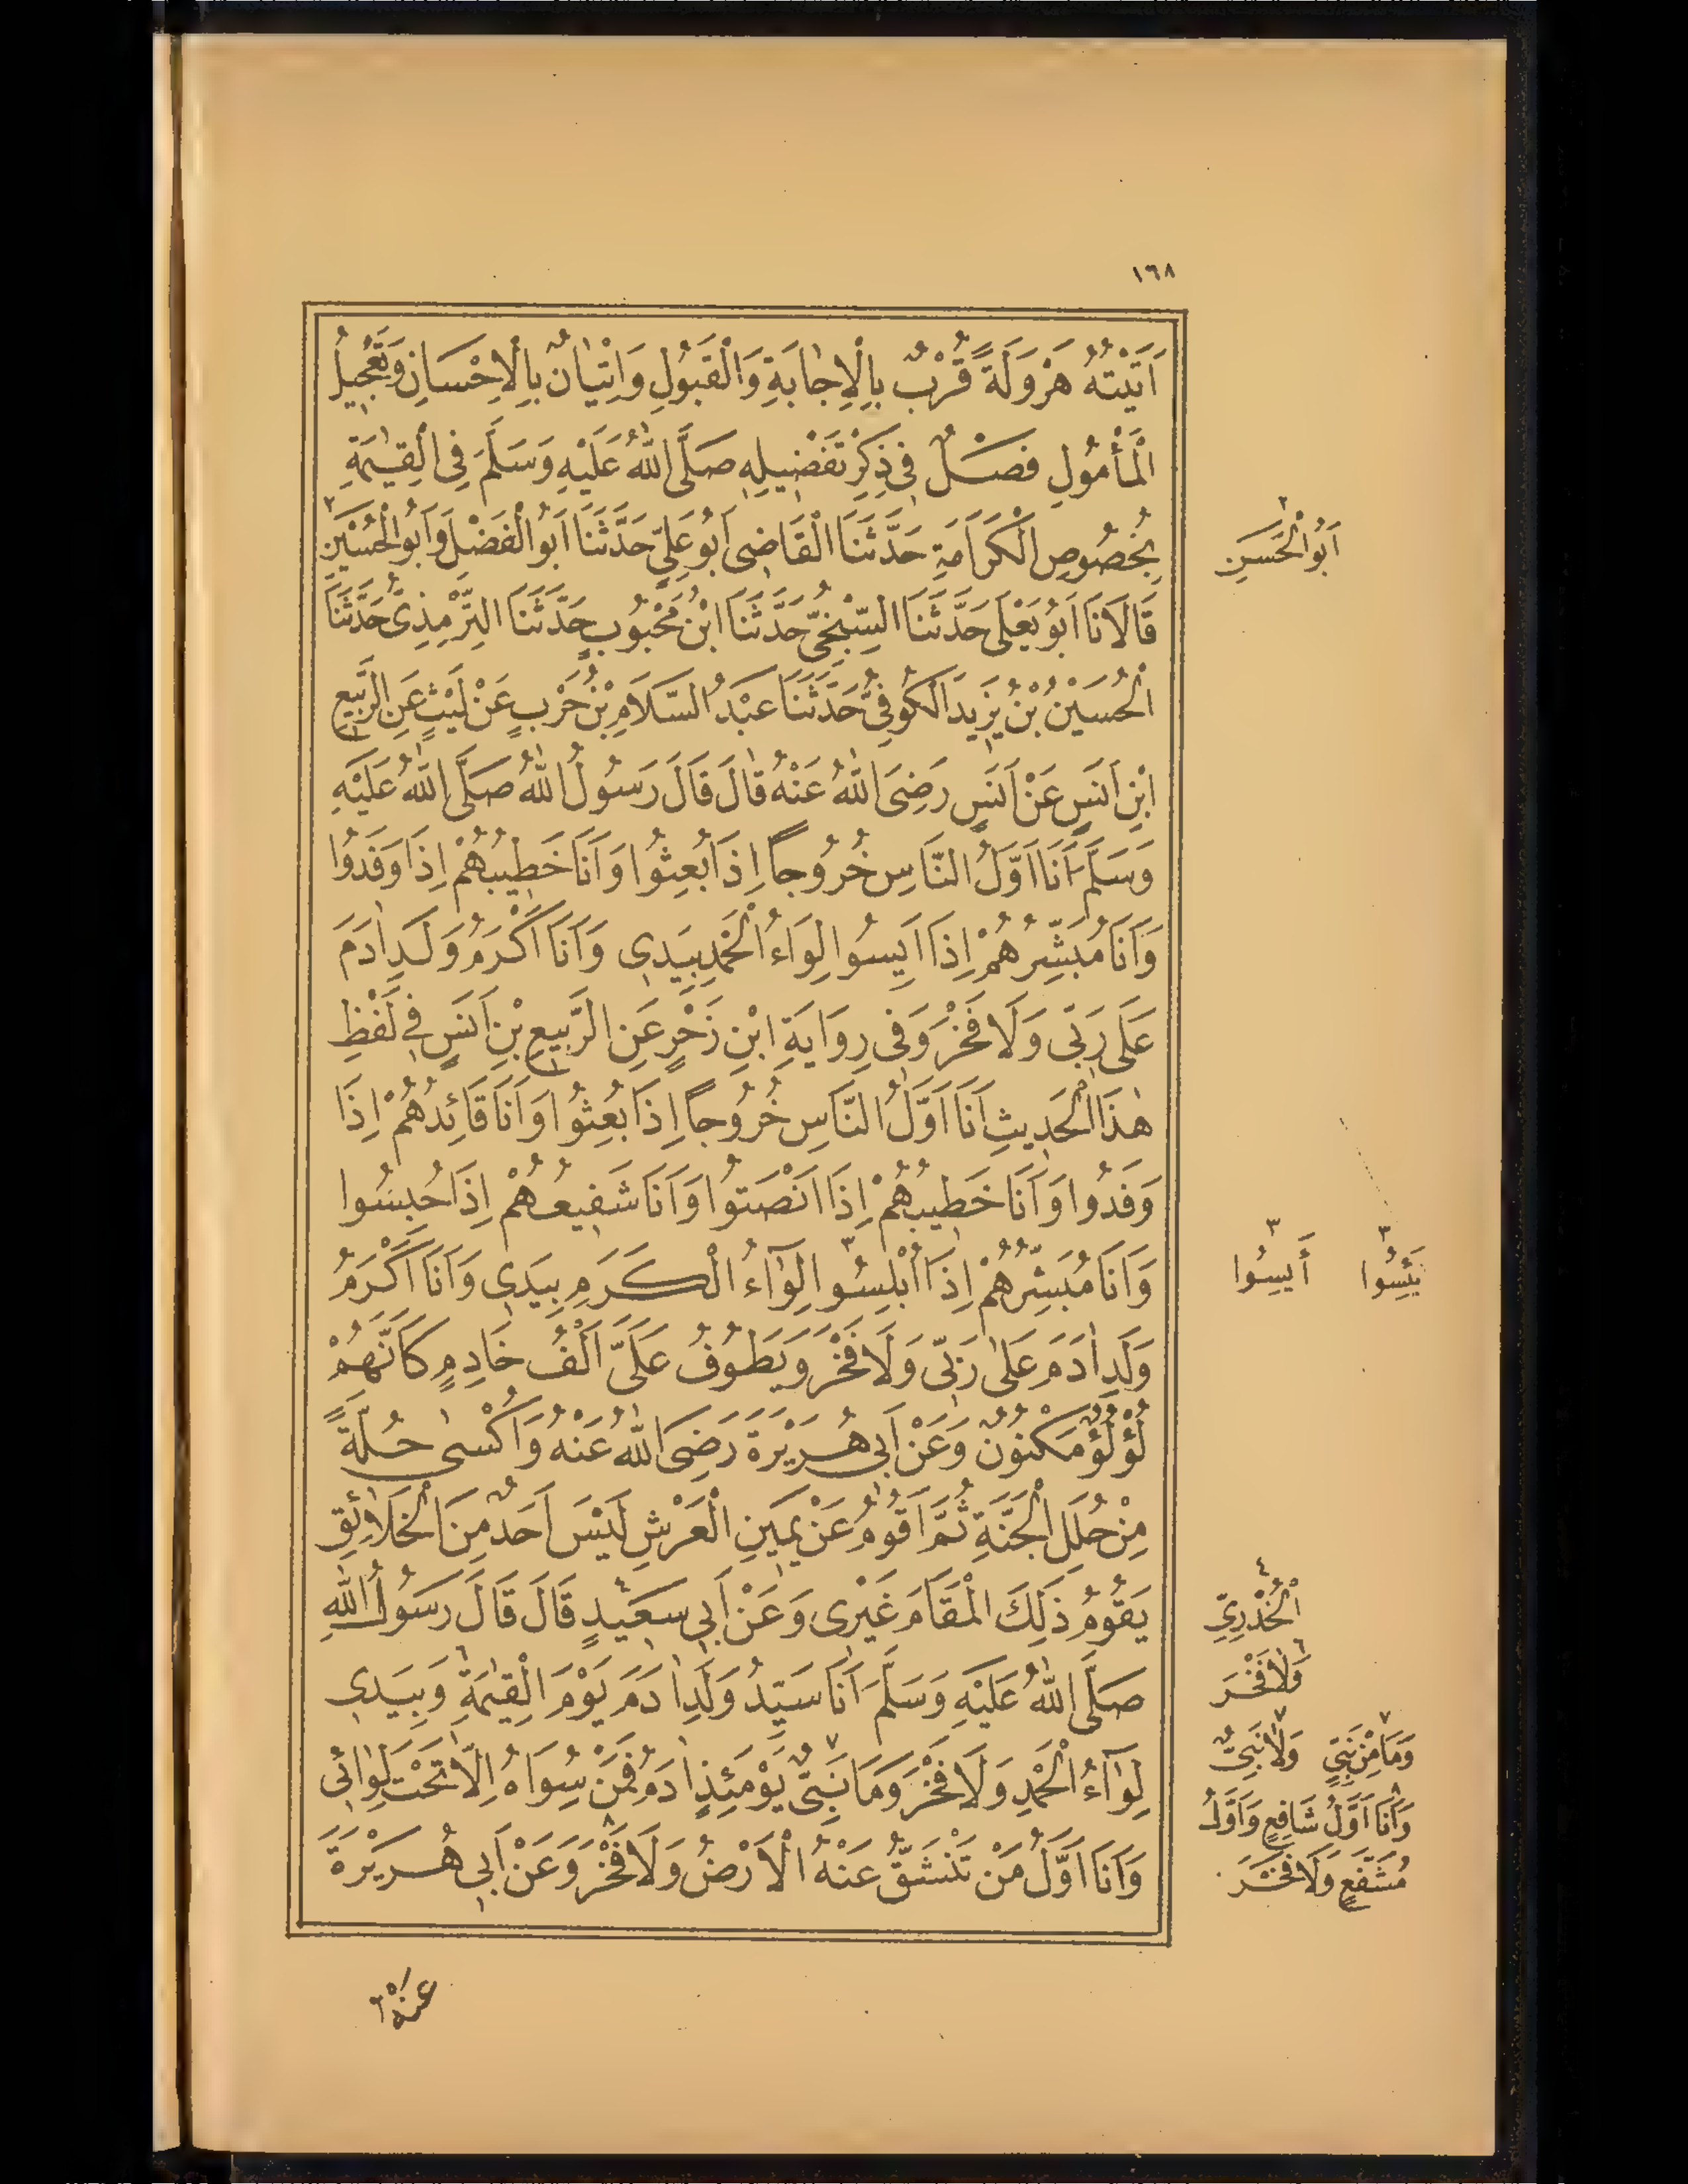 ١٦٨
اَتَيْتُهُ هَرْوَلَةً قُرْبٌ بِالْاِجَابَةِ وَالْقَبُولِ وَاِتْيَانٌ بِالْاِحْسَانِ وَتَعْجِيلُ
الْمَأْمُولِ فَصْلٌ فِى ذِكْرِ تَفْضِيلِهِ صَلَّى اللهُ عَلَيْهِ وَسَلَّمَ فِى الْقِيٰمَةِ
بِخُصُوصِ الْكَرَامَةِ حَدَّثَنَا الْقَاضِى اَبُو عَلِيٍّ حَدَّثَنَا اَبُو الْفَضْلِ وَاَبُو الْحُسَيْنِ ٢
قَالَا نَا اَبُو يَعْلَى حَدَّثَنَا السِّنْجِيُّ حَدَّثَنَا ابْنُ مَحْبُوبٍ حَدَّثَنَا التِّرْمِذِىُّ حَدَّثَنَا
الْحُسَيْنُ بْنُ يَزِيدَ الْكُوفِىُّ حَدَّثَنَا عَبْدُ السَّلَامِ بْنُ حَرْبٍ عَنْ لَيْثٍ عَنِ الرَّبِيعِ
ابْنِ اَنَسٍ عَنْ اَنَسٍ رَضِىَ اللهُ عَنْهُ قَالَ قَالَ رَسُولُ اللهُ صَلَّى اللهُ عَلَيْهِ
وَسَلَّمَ اَنَا اَوَّلُ النَّاسِ خُرُوجاً اِذَا بُعِثُوا وَاَنَا خَطِيبُهُمْ اِذَا وَفَدُوا
وَاَنَا مُبَشِّرُهُمْ اِذَا اَيِسُوا لِوَاءُ الْحَمْدِ بِيَدِى وَاَنَا اَكْرَمُ وَلَدِ اٰدَمَ
عَلَى رَبِّى وَلَا فَخْرَ وَفِى رِوَايَةِ ابْنِ زَحْرٍ عَنِ الرَّبِيعِ بْنِ اَنَسٍ فِى لَفْظِ
هٰذَا الْحَدِيثِ اَنَا اَوَّلُ النَّاسِ خُرُوجاً اِذَا بُعِثُوا وَاَنَا قَائِدُهُمْ اِذَا
وَفَدُوا وَاَنَا خَطِيبُهُمْ اِذَا اَنْصَتُوا وَاَنَا شَفِيعُهُمْ اِذَا حُبِسُوا
وَاَنَا مُبَشِّرُهُمْ اِذَا اُبْلِسُوا ٣ لِوَآءُ الْكَرَمِ بِيَدِى وَاَنَا اَكْرَمُ
وَلَدِ اٰدَمَ عَلٰى رَبِّى وَلَا فَخْرَ وَيَطُوفُ عَلَىَّ اَلْفُ خَادِمٍ كَاَنَّهُمْ
لُؤْلُؤٌ مَكْنُونٌ وَعَنْ اَبِى هُرَيْرَةَ رَضِىَ اللهُ عَنْهُ وَاُكْسٰى حُلَّةً
مِنْ حُلَلِ الْجَنَّةِ ثُمَّ اَقُومُ عَنْ يَمِينِ الْعَرْشِ لَيْسَ اَحَدٌ مِنَ الْخَلَائِقِ
يَقُومُ ذٰلِكَ الْمَقَامَ غَيْرِى وَعَنْ اَبِى سَعِيدٍ ٤ قَالَ قَالَ رَسُولُ اللهِ
صَلَّى اللهُ عَلَيْهِ وَسَلَّمَ اَنَا سَيِّدُ وَلَدِ اٰدَمَ يَوْمَ الْقِيٰمَةِ ٦ وَبِيَدِى
لِوَآءُ الْحَمْدِ وَلَا فَخْرَ وَمَا نَبِىٌّ ٧ يَوْمَئِذٍ اٰدَمُ فَمَنْ سِوَاهُ اِلَّا تَحْتَ لِوَائِى
وَاَنَا اَوَّلُ مَنْ تَنْشَقُّ عَنْهُ الْاَرْضُ وَلَا فَخْرَ ٨ وَعَنْ اَبِى هُرَيْرَةَ
٢
اَبُو الْحَسَنِ
٣ ٣
يَئِسُوا أَيِسُوا
٤
الْخُدْرِىِّ
٦
وَلَا فَخْرَ
٧ ٧
وَمَا مِنْ نَبِىٍّ وَلَا نَبِىٌّ
٨
وَاَنَا اَوَّلُ شَافِعٍ وَاَوَّلُ
مُشَفَّعٍ وَلَا فَخْرَ
عَنْهُ